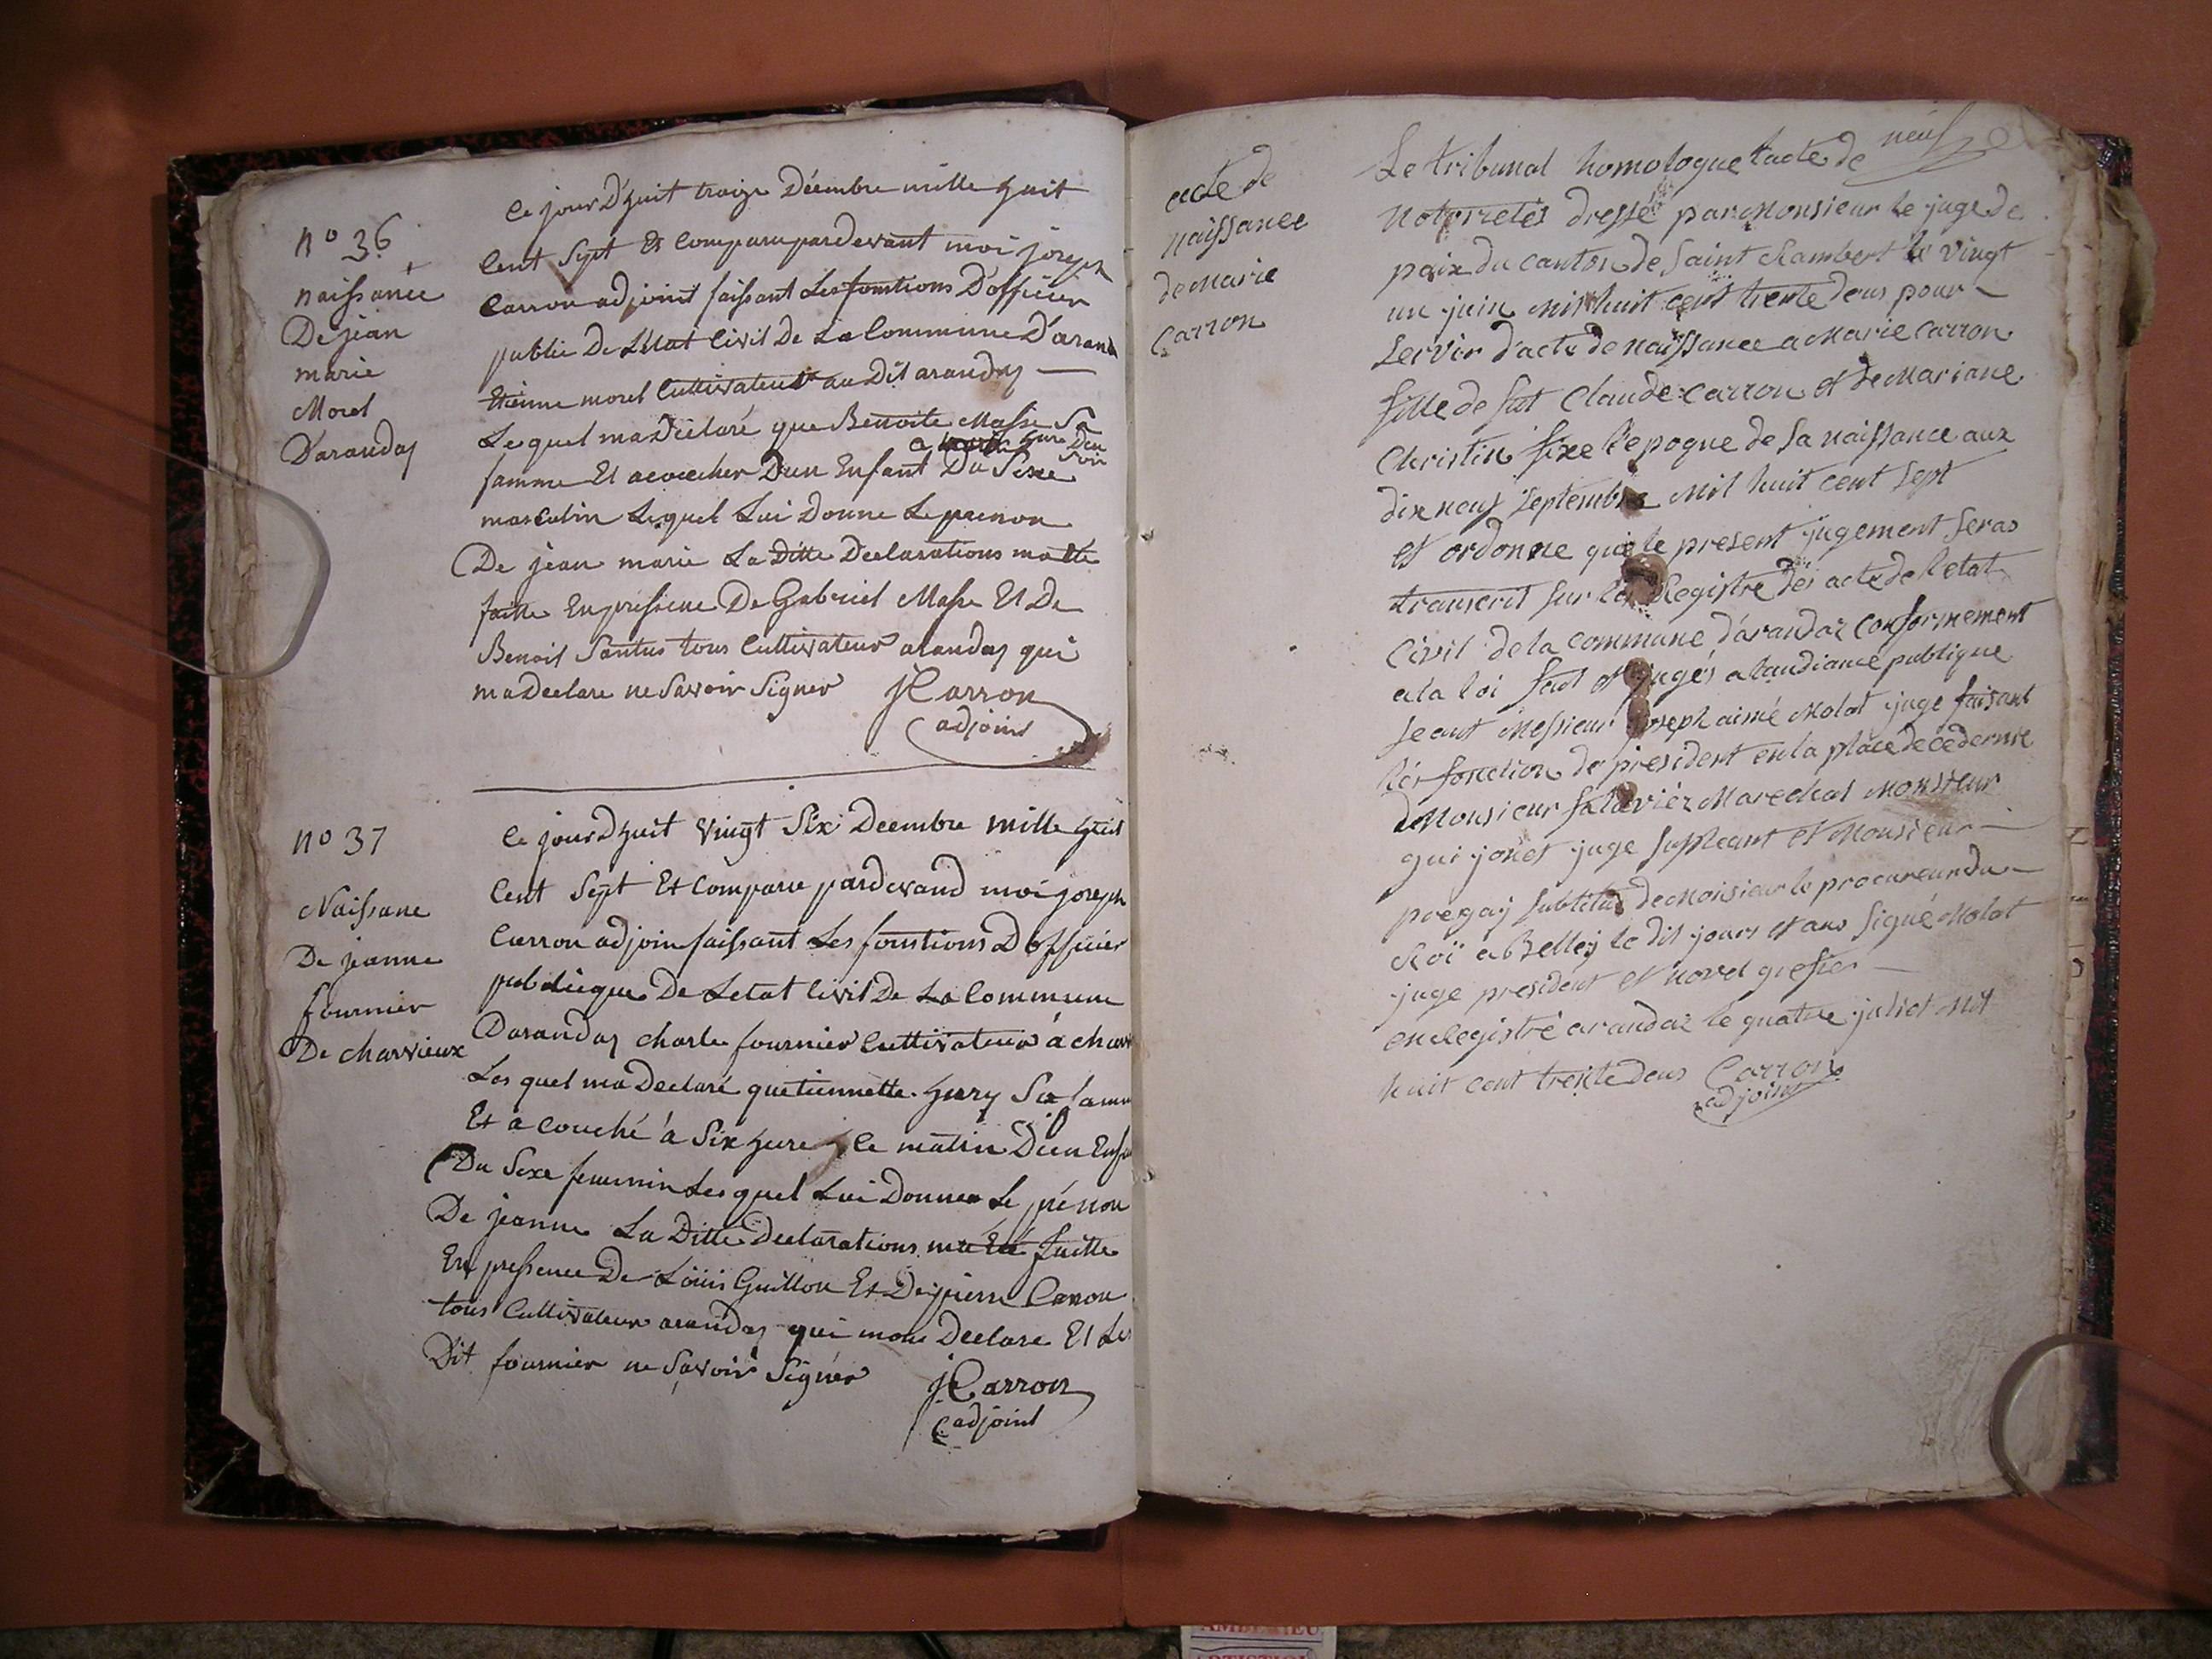 nº 36
naissance
De jean
marie
Morel
D'arandas
Ce jourD'huit traize Décembre mille huit
Cent Sept Et Comparu pardevant moi joseph
Carron adjoint faissant Les fonstions D'officier
public De L'Etat Civil De La Commune D'arand
Etienne morel Cultivateur au Dit arandas
Lequel ma Déclaré que Benoite Masse Sa
a hure Deu
Soir
famme Et acoucher D'un Enfant Du Sexe
masculin Lequel Lui Donne Le prenon
De jean marie La Ditte Declarations
faitte En pressence De Gabriel Masse Et De
Benoit Santus tous Cultivateur arandas qui
ma Declare ne Savoir Signer JCarron
adjoint
nº 37
Naissane
De jeanne
fournier
De charvieux
Ce jourD'huit vingt Six Decembre mille huit
Cent Sept Et Comparu pardevand moi joseph
Carron adjoin faissant Les fonstions D'officier
publicque De Letat Civil De La Commune
Darandas charle fournier Cultivateur á charv
Les quel ma Declaré quetiennette hugy Sa famm
Et a Couché á Six hure le matin D'un Enfa
Du Sexe feminin Les quel Lui Donner Le prénon
De jeanne La Ditte Declarations ma Eté faitte
En pressence De Louis Guillon Et De pierre Carron
tous Cultivateur arandas qui mon Declare Et Les
Dit fournier ne Savoir Signér JCarron
adjoint
neuf
acte de
naissance
de Marie
Carron
Le tribunal homologue l'acte de
notorietés dressé par Monsieur le juge de
paix du canton de Saint Rambert le vingt
un juin mil huit cent trente deux pour
servir d'acte de naissance a Marie Carron
fille de fut Claude Carron et de Mariane
Christin fixe l'epoque de sa naissance aux
dix neuf Septembre mil huit cent sept
et ordonne que le present jugement seras
transcrit sur les Registre des acte de l'etat
Civil de la commune d'arandaz conformement
a la loi fait et jugés a laudiance publique
seant Messieur joseph aimé Molot juge faisant
les fonction de president en la place de ce dernie
de Monsieur Marechal Monsieur
gui jonet juge supleant et Monsieur
subtitut de Monsieur le procureur du
Roi a Belley le dit jours et ans signé Molot
juge president et grefier
enregistré arandaz le quatre juliet mil
huit cent trente deux Carron
adjoint